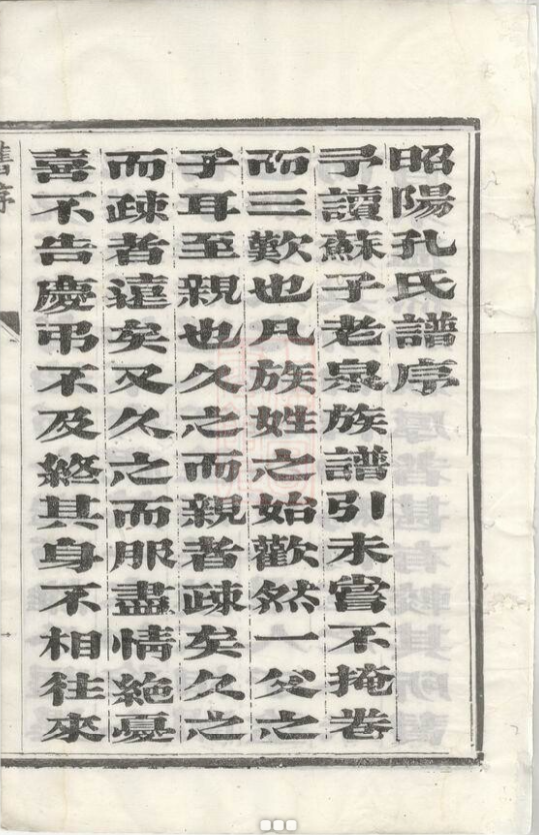 昭陽孔氏譜序
予讀蘇子老泉族譜引未嘗不掩卷
而三歎也凡族姓之始歡然一父之
子耳至親也久之而親者疎矣久之
而疎者遠矣又久之而服盡情絶憂
喜不告慶弔不及終其身不相往來
舊序